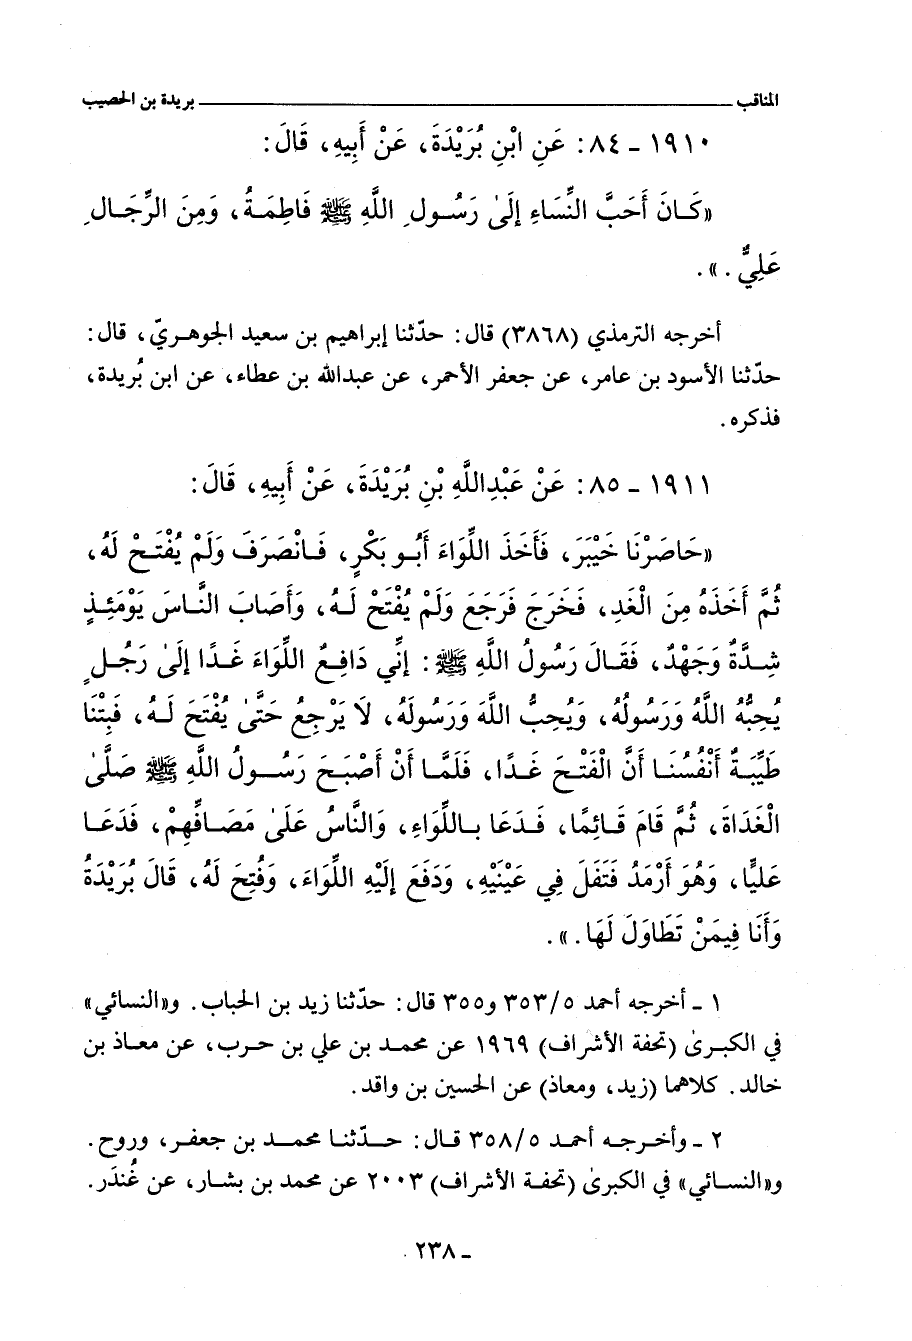 المناقب ــــــــــــــــــــ بريدة بن الحصيب
١٩١٠ ـ ٨٤: عَنِ ابْنِ بُرَيْدَةَ، عَنْ أَبِيهِ، قَالَ:
«كَـانَ أَحَبَّ النِّسَاءِ إِلَىٰ رَسُـولِ اللَّهِ ﷺ فَاطِمَـةُ، وَمِنَ الرِّجَـالِ
عَلِيٌّ.».
أخرجه الترمذي (٣٨٦٨) قال: حدّثنا إبراهيم بن سعيد الجوهـريّ، قال:
حدّثنا الأسود بن عامر، عن جعفر الأحمر، عن عبدالله بن عطاء، عن ابن بُريدة،
فذكره.
١٩١١ ـ ٨٥: عَنْ عَبْدِاللَّهِ بْنِ بُرَيْدَةَ، عَنْ أَبِيهِ، قَالَ:
«حَاصَرْنَا خَيْبَرَ، فَأَخَذَ اللِّوَاءَ أَبُـو بَكْرٍ، فَـانْصَرَفَ وَلَمْ يُفْتَـحْ لَهُ،
ثُمَّ أَخَذَهُ مِنَ الْغَدِ، فَخَرَجَ فَرَجَعَ وَلَمْ يُفْتَحْ لَـهُ، وَأَصَابَ النَّاسَ يَوْمَئِـذٍ
شِـدَّةٌ وَجَهْدٌ، فَقَالَ رَسُولُ اللَّهِ ﷺ: إِنِّي دَافِعٌ اللِّوَاءَ غَـدًا إِلَىٰ رَجُـلٍ
يُحِبُّهُ اللَّهُ وَرَسُولُهُ، وَيُحِبُّ اللَّهَ وَرَسُولَهُ، لَا يَرْجِعُ حَتَّىٰ يُفْتَحَ لَـهُ، فَبِتْنَا
طَيِّبَـةٌ أَنْفُسُنَـا أَنَّ الْفَتْـحَ غَـدًا، فَلَمَّـا أَنْ أَصْبَـحَ رَسُـولُ اللَّهِ ﷺ صَلَّىٰ
الْغَدَاةَ، ثُمَّ قَامَ قَـائِمًا، فَـدَعَا بـاللِّوَاءِ، وَالنَّاسُ عَلَىٰ مَصَـافِّهِمْ، فَدَعَـا
عَلِيًّا، وَهُوَ أَرْمَدُ فَتَفَلَ فِي عَيْنَيْهِ، وَدَفَعَ إِلَيْهِ اللِّوَاءَ، وَفُتِحَ لَهُ، قَالَ بُرَيْدَةُ
وَأَنَا فِيمَنْ تَطَاوَلَ لَهَا.».
١ ـ أخرجه أحمد ٣٥٣/٥ و٣٥٥ قال: حدّثنا زيد بن الحباب. و«النسائي»
في الكبـرىٰ (تحفة الأشراف) ١٩٦٩ عن محمـد بن علي بن حـرب، عن معـاذ بن
خالد. كلاهما (زيد، ومعاذ) عن الحسين بن واقد.
٢ ـ وأخـرجـه أحمـد ٣٥٨/٥ قـال: حـدّثنـا محمـد بن جعفـر، وروح.
و«النسـائي» في الكبرىٰ (تحفـة الأشراف) ٢٠٠٣ عن محمد بن بشـار، عن غُندَر.
ـ ٢٣٨ .